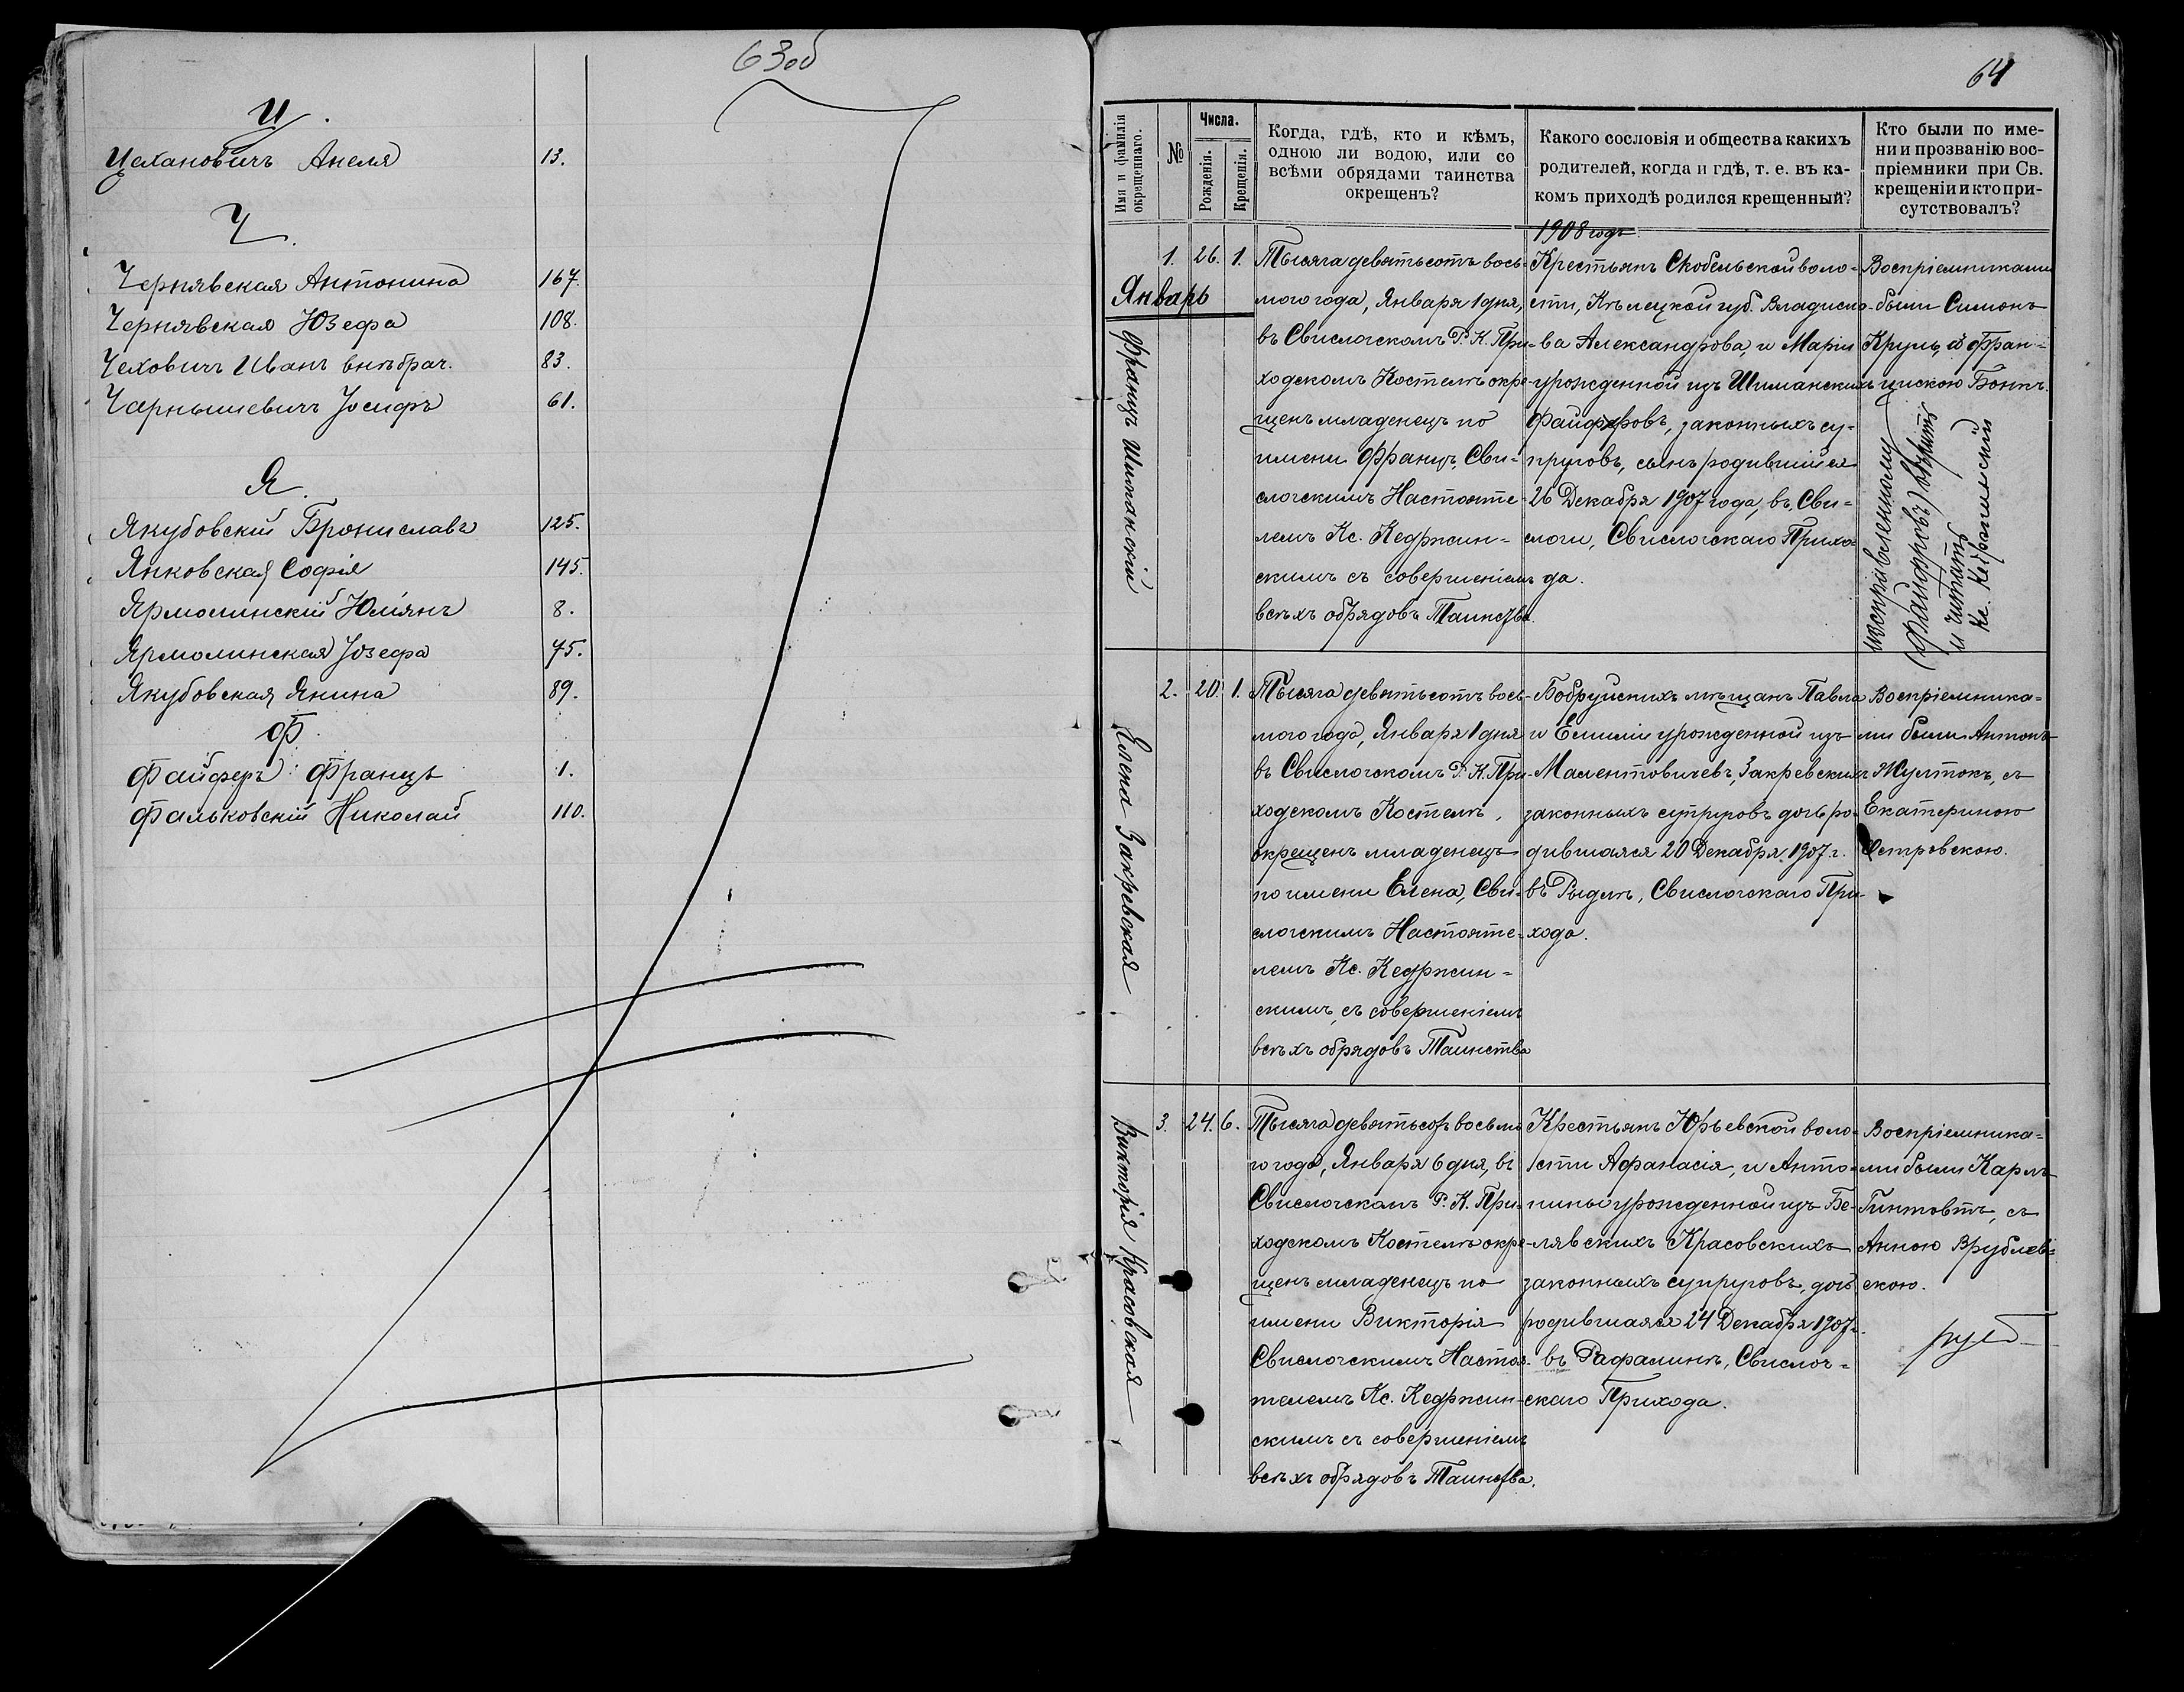 63об
Ц.
Цехановичъ Анеля 13.
Ч.
Чернявская Антонина 167.
Чернявская Юзефа 108.
Чеховичъ Иванъ внѣбрач. 83.
Чарнышевичъ Іосифъ 61.
Я.
Якубовскій Брониславъ 125.
Янковская Софія 145.
Ярмолинскій Юліянъ 8.
Ярмолинская Іозефа 75.
Якубовская Янина 89.
Ф.
Файферъ Францъ 1.
Фальковскій Николай 110.
64
Имя и фамилія окрещеннаго.
№
Числа.
Рожденія.
Крещенія.
Когда, гдѣ, кто и кѣмъ,
одною ли водою, или со
всѣми обрядами таинства
окрещенъ?
Какого сословія и общества какихъ
родителей, когда и гдѣ, т. е. въ ка-
комъ приходѣ родился крещенный?
Кто были по име-
ни и прозванію вос-
пріемники при Св.
крещеніи и кто при-
сутствовалъ?
1908 годъ.
Январь
Францъ Шиманскій
1. 26. 1.
Тысяча девятьсотъ вось-
мого года, Января 1 дня,
въ Свислочскомъ Р. К. При-
ходскомъ Костелѣ окре-
щенъ младенецъ по
имени Францъ, Сви-
слочскимъ Настояте-
лемъ Кс. Кедржин-
скимъ съ совершеніемъ
всѣхъ обрядовъ Таинства.
Крестьянъ Скобельской воло-
сти, Кѣлецкой губ. Владисла-
ва Александрова, и Маріи
урожденной изъ Шиманскихъ
Файферовъ, законныхъ су-
пруговъ, сынъ родившійся
26 Декабря 1907 года, въ Сви-
слочи, Свислочскаго Прихо-
да.
Воспріемниками
были Симонъ
Круль, съ Фран-
цискою Бонкъ.
исправленному
(Файферовъ) вѣрить
и читать
Кс. Кедржинскій
Елена Закревская
2. 20. 1.
Тысяча девятьсотъ вось-
мого года, Января 1 дня
въ Свислочскомъ Р. К. При-
ходскомъ Костелѣ,
окрещенъ младенецъ
по имени Елена, Сви-
слочскимъ Настояте-
лемъ Кс. Кедржин-
скимъ, съ совершеніемъ
всѣхъ обрядовъ Таинства
Бобруйскихъ мѣщанъ Павла
и Емиліи урожденной изъ
Малентовичевъ, Закревскихъ
законныхъ супруговъ дочь ро-
дившаяся 20 Декабря 1907 г.
въ Рыдлѣ, Свислочскаго При-
хода.
Воспріемника-
ми были Антонъ
Жултокъ, съ
Екатериною
Островскою.
Викторія Красовская
3. 24. 6.
Тысяча девятьсотъ восьмо
го года, Января 6 дня, въ
Свислочскомъ Р. К. При-
ходскомъ Костелѣ окре-
щенъ младенецъ по
имени Викторія
Свислочскимъ Настоя-
телемъ Кс. Кедржин-
скимъ съ совершеніемъ
всѣхъ обрядовъ Таинства.
Крестьянъ Юрьевской воло-
сти Афанасія, и Анто-
нины урожденной изъ Бе-
лявскихъ Красовскихъ
законныхъ супруговъ, дочь
родившаяся 24 Декабря 1907 г.
въ Рафалинѣ, Свислоч-
скаго Прихода.
Воспріемника-
ми были Карлъ
Гинтовтъ, съ
Анною Врублев-
скою.